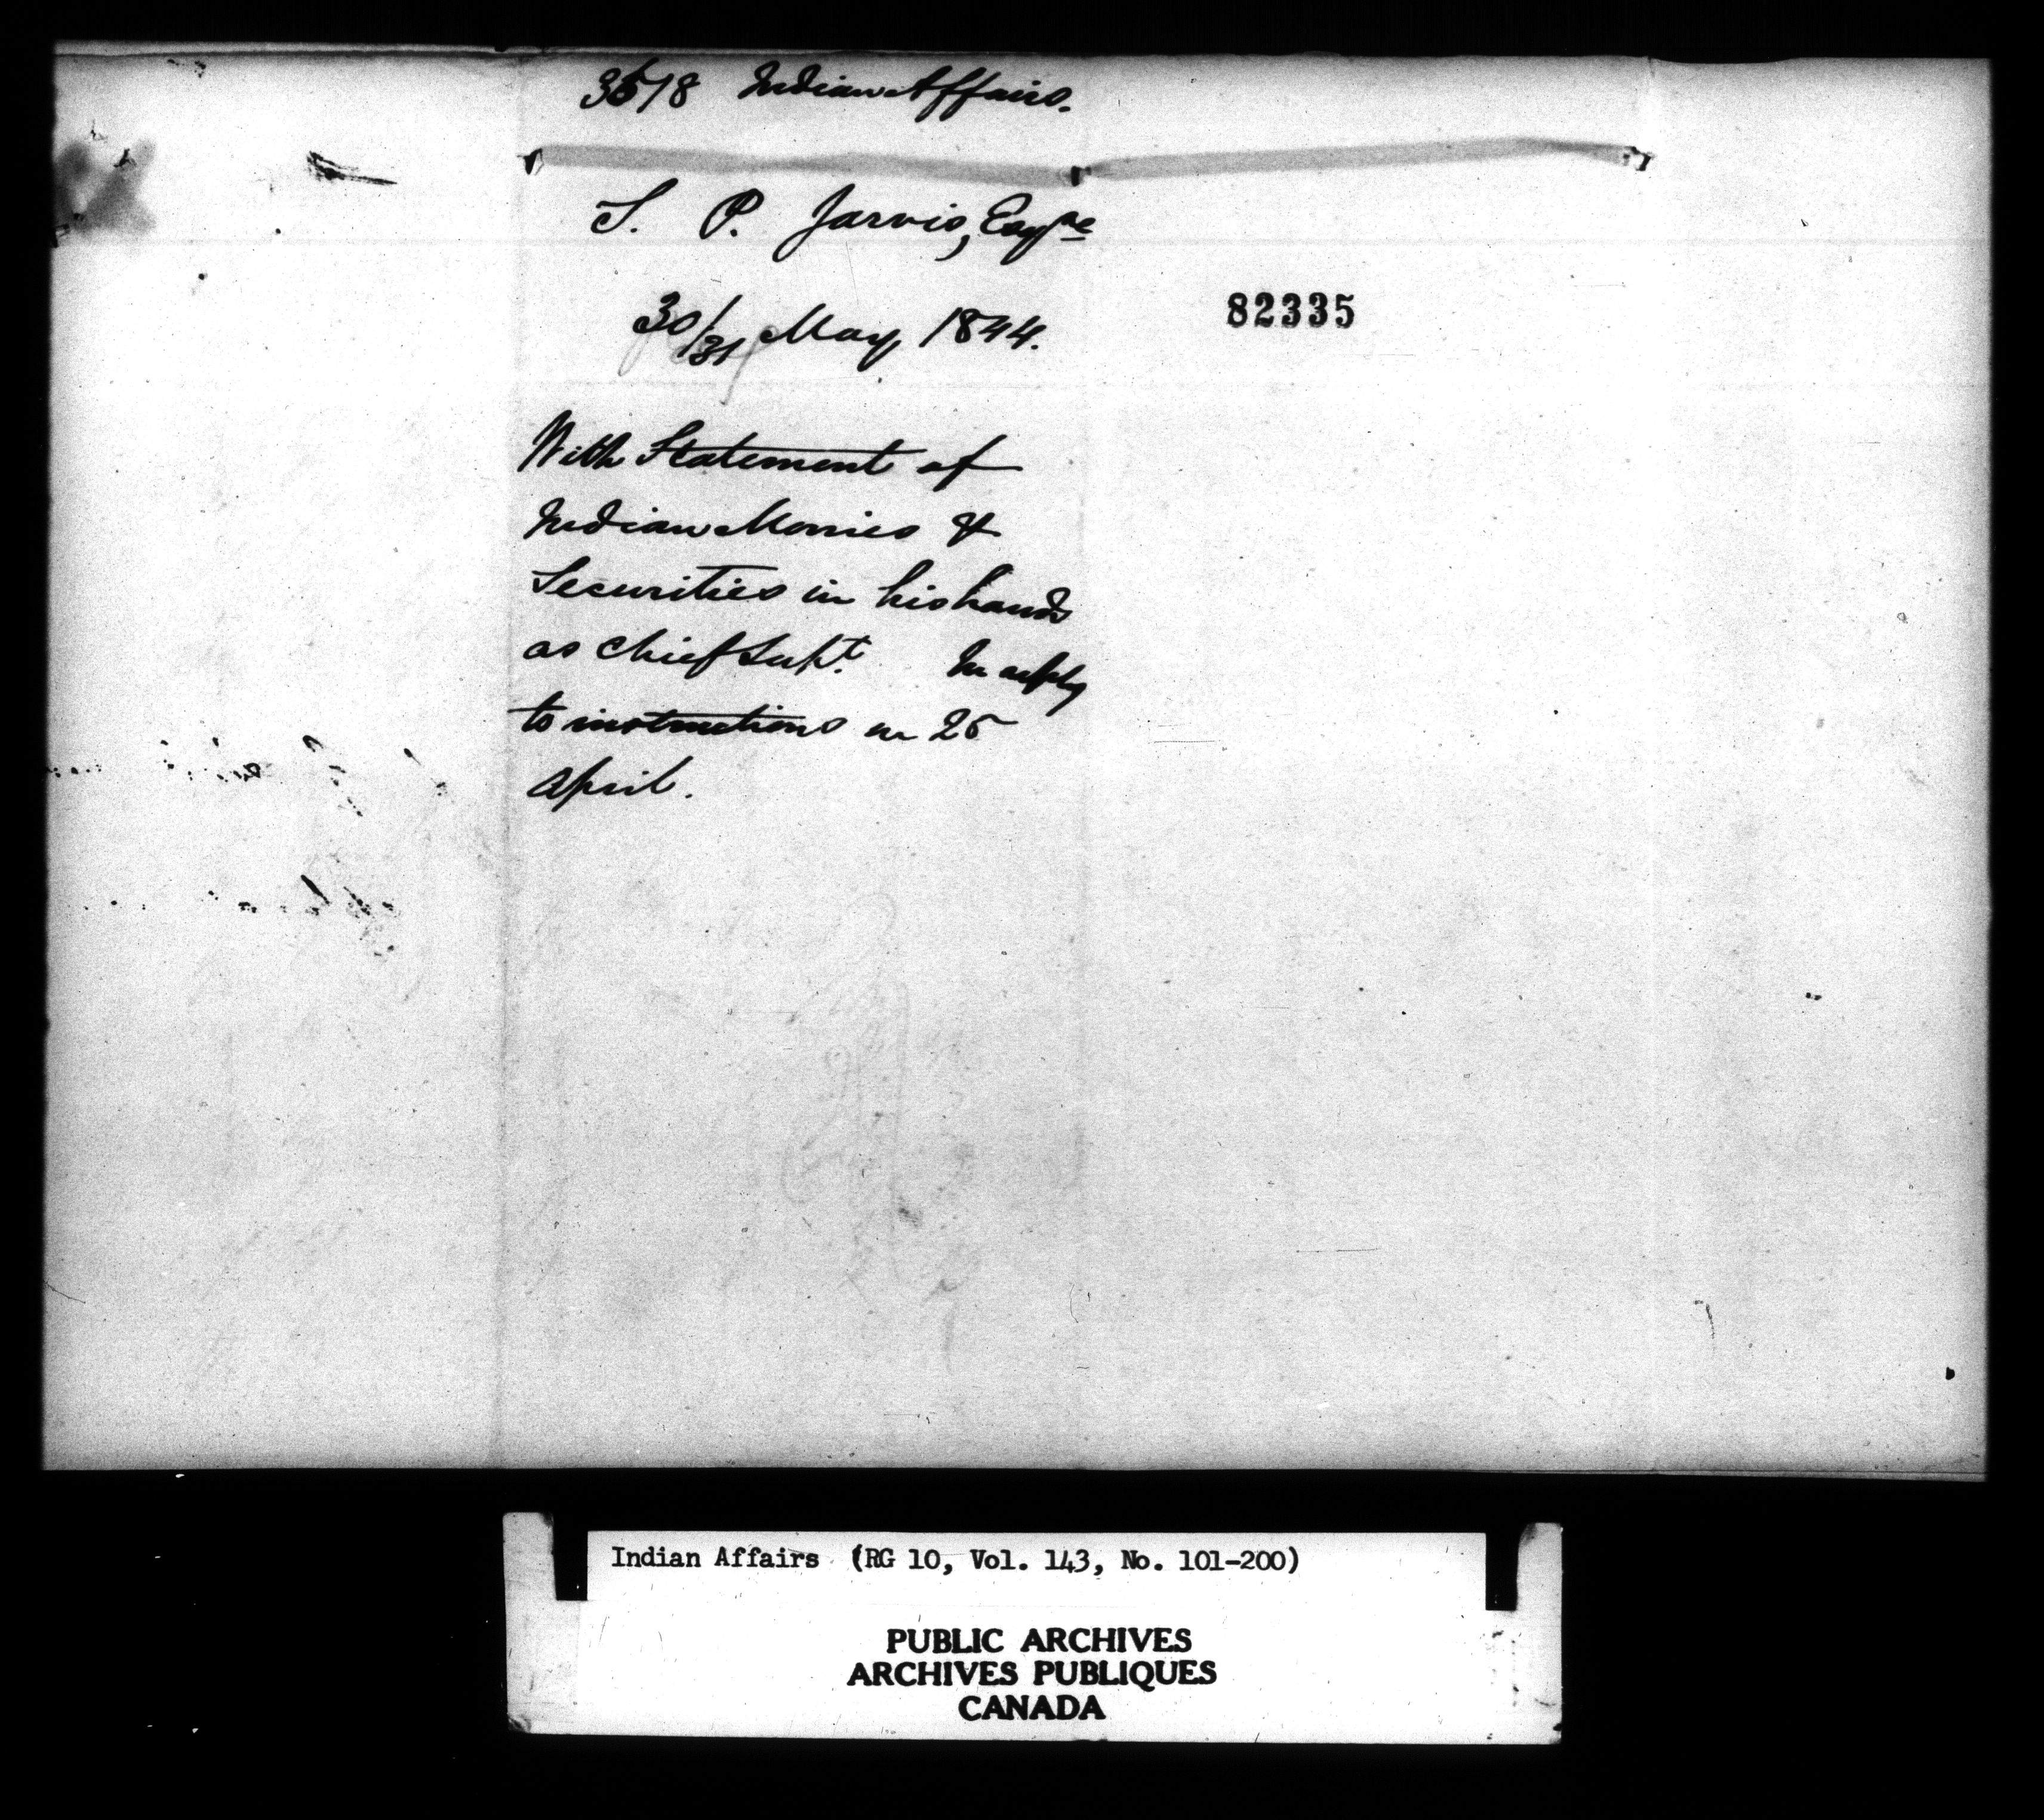 3518 Indian Affairs.
S. P. Jarvis, Esqre
30/31 May 1844.
82335
With Statement of
Indian Monies &
Securities in his hands
as Chief Supt. In reply
to instructions on 25
April.
Indian Affairs (RG 10, Vol. 143, No. 101-200)
PUBLIC ARCHIVES
ARCHIVES PUBLIQUES
CANADA